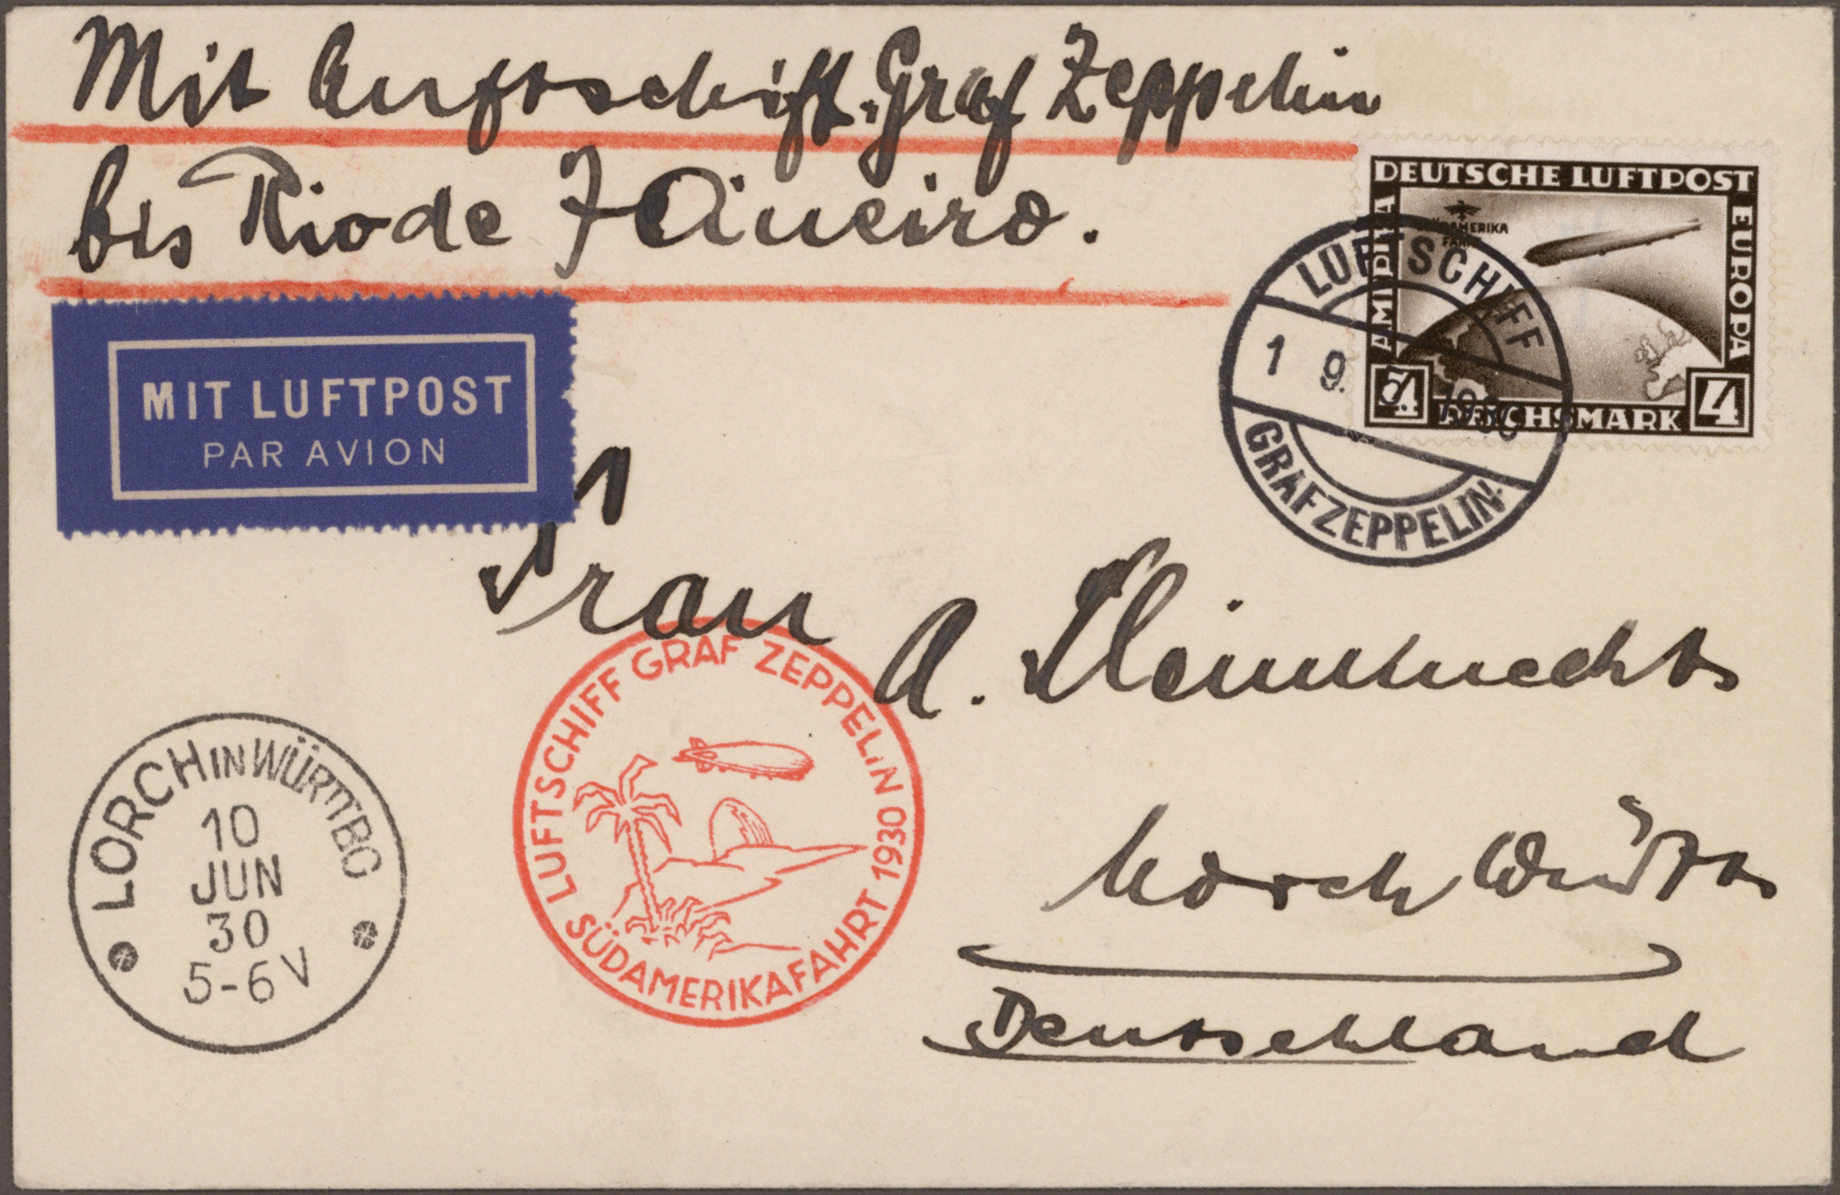 Mit Luftschiff. Graf Zeppelin
bis Rio de Janeiro.
DEUTSCHE LUFTPOST
EUROPA
AMERIKA
SÜDAMERIKA
FAHRT
4 REICHSMARK 4
LUFTSCHIFF
1 9. 5. 1930
GRAF ZEPPELIN
MIT LUFTPOST
PAR AVION
Frau
A.
LUFTSCHIFF GRAF ZEPPELIN
SÜDAMERIKAFAHRT 1930
LORCH IN WÜRTTBG
10
JUN
30
5-6 V
Lorch Württ
Deutschland